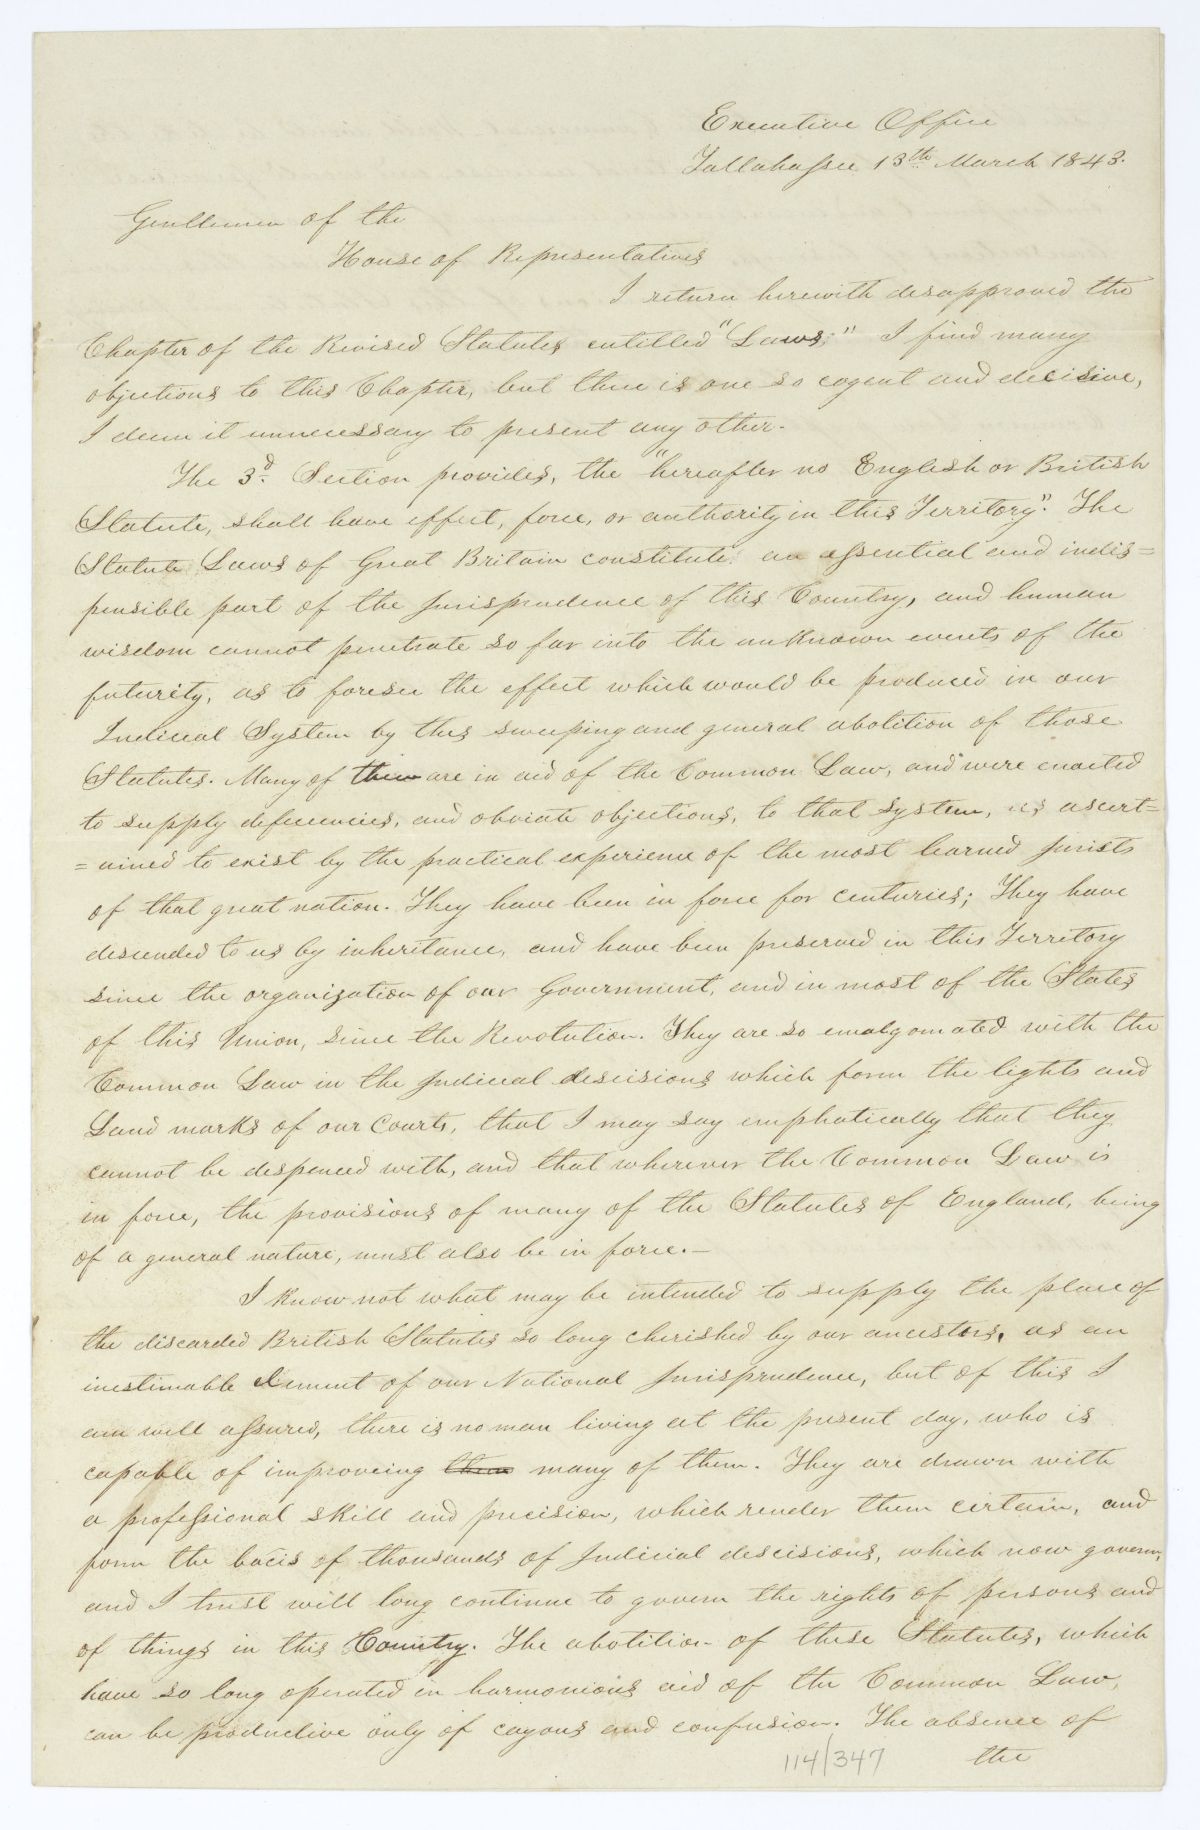 Executive Office
Tallahassee 13th March 1843.
Gentlemen of the
House of Representatives
I return herewith disapproved the
Chapter of the Revised Statutes entitled "Laws;" I find many
objections to this Chapter, but there is one so cogent and decisive,
I deem it unnecessary to present any other.
The 3d. Section provides, the "hereafter no English or British
Statute, shall have effect, force, or authority in this Territory". The
Statute Laws of Great Britain constitute an essential and indis=
pensible part of the Jurisprudence of this Country, and human
wisdom cannot penetrate so far into the unknown events of the
futurity, as to foresee the effect which would be produced in our
Judicial System by this sweeping and general abolition of those
Statutes. Many of them are in aid of the Common Law, and were enacted
to supply deficiencies, and obviate objections, to that system, as ascert=
=ained to exist by the practical experience of the most learned Jurists
of that great nation. They have been in force for centuries; They have
descended to us by inheritance, and have been preserved in this Territory
since the organization of our Government, and in most of the States
of this Union, since the Revolution. They are so emalgomated with the
Common Law in the Judicial descisions which form the lights and
Land marks of our Courts, that I may say emphatically that they
cannot be despenced with, and that wherever the Common Law is
in force, the provisions of many of the Statutes of England, being
of a general nature, must also be in force.—
I know not what may be intended to supply the place of
the discarded British Statutes so long cherished by our ancestors, as an
inestimable Element of our National Jurisprudence, but of this I
am well assured, there is no man living at the present day, who is
capable of improveing them many of them. They are drawn with
a professional skill and precision, which render them certain, and
form the bacis of thousands of Judicial descisions, which now govern,
and I trust will long continue to govern the rights of persons and
of things in this Country. The abolition of these Statutes, which
have so long operated in harmonious aid of the Common Law,
can be productive only of cayous and confusion. The absence of
the
114/347